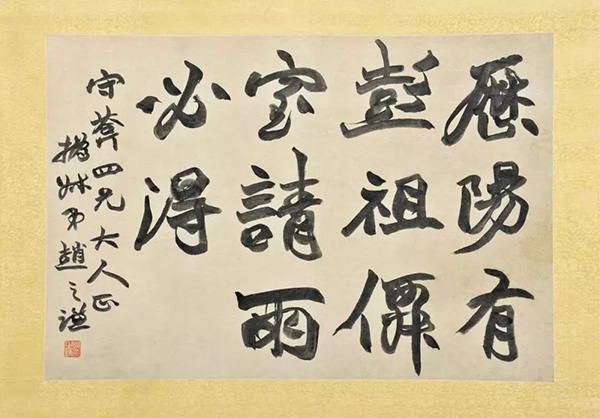 歷陽有
彭祖僊
室請雨
必得
守四兄大人正
撝叔弟趙之謙